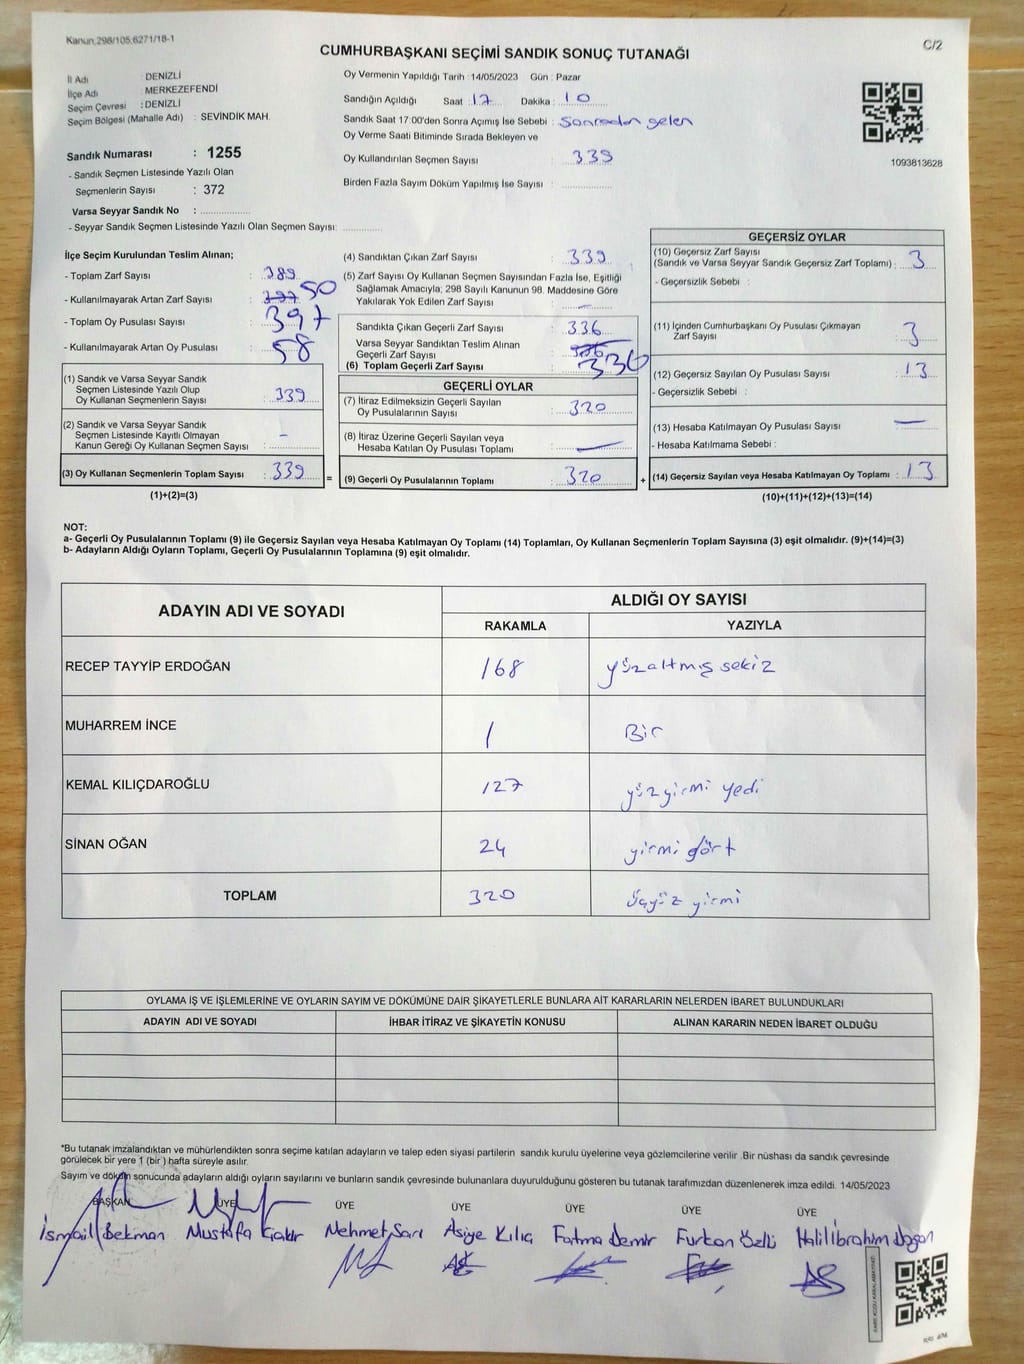 Kanun:298/105,6271/18-1
C/2
CUMHURBAŞKANI SEÇİMİ SANDIK SONUÇ TUTANAĞI
İl Adı : DENİZLİ
İlçe Adı : MERKEZEFENDİ
Seçim Çevresi : DENİZLİ
Seçim Bölgesi (Mahalle Adı) : SEVİNDİK MAH.
Sandık Numarası : 1255
- Sandık Seçmen Listesinde Yazılı Olan
Seçmenlerin Sayısı : 372
Varsa Seyyar Sandık No :
- Seyyar Sandık Seçmen Listesinde Yazılı Olan Seçmen Sayısı:
Oy Vermenin Yapıldığı Tarih : 14/05/2023 Gün : Pazar
Sandığın Açıldığı Saat : 17 Dakika : 10
Sandık Saat 17:00'den Sonra Açımış İse Sebebi : Sonradan gelen
Oy Verme Saati Bitiminde Sırada Bekleyen ve
Oy Kullandırılan Seçmen Sayısı : 339
Birden Fazla Sayım Döküm Yapılmış İse Sayısı :
1093813628
İlçe Seçim Kurulundan Teslim Alınan;
- Toplam Zarf Sayısı : 389
- Kullanılmayarak Artan Zarf Sayısı : 50
- Toplam Oy Pusulası Sayısı : 397
- Kullanılmayarak Artan Oy Pusulası : 58
(1) Sandık ve Varsa Seyyar Sandık
Seçmen Listesinde Yazılı Olup
Oy Kullanan Seçmenlerin Sayısı : 339
(2) Sandık ve Varsa Seyyar Sandık
Seçmen Listesinde Kayıtlı Olmayan
Kanun Gereği Oy Kullanan Seçmen Sayısı : -
(3) Oy Kullanan Seçmenlerin Toplam Sayısı : 339 =
(1)+(2)=(3)
(4) Sandıktan Çıkan Zarf Sayısı : 339
(5) Zarf Sayısı Oy Kullanan Seçmen Sayısından Fazla İse, Eşitliği
Sağlamak Amacıyla; 298 Sayılı Kanunun 98. Maddesine Göre
Yakılarak Yok Edilen Zarf Sayısı : -
Sandıkta Çıkan Geçerli Zarf Sayısı : 336
Varsa Seyyar Sandıktan Teslim Alınan
Geçerli Zarf Sayısı :
(6) Toplam Geçerli Zarf Sayısı : 336
GEÇERLİ OYLAR
(7) İtiraz Edilmeksizin Geçerli Sayılan
Oy Pusulalarının Sayısı : 320
(8) İtiraz Üzerine Geçerli Sayılan veya
Hesaba Katılan Oy Pusulası Toplamı : -
(9) Geçerli Oy Pusulalarının Toplamı : 320 +
GEÇERSİZ OYLAR
(10) Geçersiz Zarf Sayısı
(Sandık ve Varsa Seyyar Sandık Geçersiz Zarf Toplamı) : 3
- Geçersizlik Sebebi :
(11) İçinden Cumhurbaşkanı Oy Pusulası Çıkmayan
Zarf Sayısı : 3
(12) Geçersiz Sayılan Oy Pusulası Sayısı : 13
- Geçersizlik Sebebi :
(13) Hesaba Katılmayan Oy Pusulası Sayısı : -
- Hesaba Katılmama Sebebi :
(14) Geçersiz Sayılan veya Hesaba Katılmayan Oy Toplamı : 13
(10)+(11)+(12)+(13)=(14)
NOT:
a- Geçerli Oy Pusulalarının Toplamı (9) ile Geçersiz Sayılan veya Hesaba Katılmayan Oy Toplamı (14) Toplamları, Oy Kullanan Seçmenlerin Toplam Sayısına (3) eşit olmalıdır. (9)+(14)=(3)
b- Adayların Aldığı Oyların Toplamı, Geçerli Oy Pusulalarının Toplamına (9) eşit olmalıdır.
ADAYIN ADI VE SOYADI ALDIĞI OY SAYISI
RAKAMLA YAZIYLA
RECEP TAYYİP ERDOĞAN 168 yüzaltmış sekiz
MUHARREM İNCE 1 Bir
KEMAL KILIÇDAROĞLU 127 yüzyirmi yedi
SİNAN OĞAN 24 yirmi dört
TOPLAM 320 üçyüz yirmi
OYLAMA İŞ VE İŞLEMLERİNE VE OYLARIN SAYIM VE DÖKÜMÜNE DAİR ŞİKAYETLERLE BUNLARA AİT KARARLARIN NELERDEN İBARET BULUNDUKLARI
ADAYIN ADI VE SOYADI İHBAR İTİRAZ VE ŞİKAYETİN KONUSU ALINAN KARARIN NEDEN İBARET OLDUĞU
*Bu tutanak imzalandıktan ve mühürlendikten sonra seçime katılan adayların ve talep eden siyasi partilerin sandık kurulu üyelerine veya gözlemcilerine verilir .Bir nüshası da sandık çevresinde
görülecek bir yere 1 (bir) hafta süreyle asılır.
Sayım ve döküm sonucunda adayların aldığı oyların sayılarını ve bunların sandık çevresinde bulunanlara duyurulduğunu gösteren bu tutanak tarafımızdan düzenlenerek imza edildi. 14/05/2023
BAŞKAN ÜYE ÜYE ÜYE ÜYE ÜYE ÜYE
İsmail Bekman Mustafa Çakır Mehmet Sarı Asiye Kılıç Fatma Demir Furkan Özlü Halil İbrahim Doğan